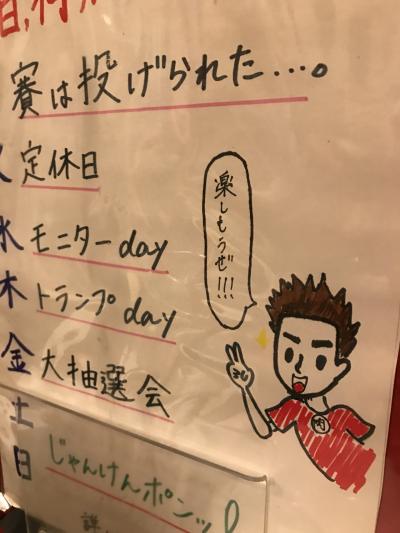 賽は投げられた…。
定休日
水 モニターday
木 トランプday
金 大抽選会
土
日 じゃんけんポンッ!
楽しもうぜ!!!
肉